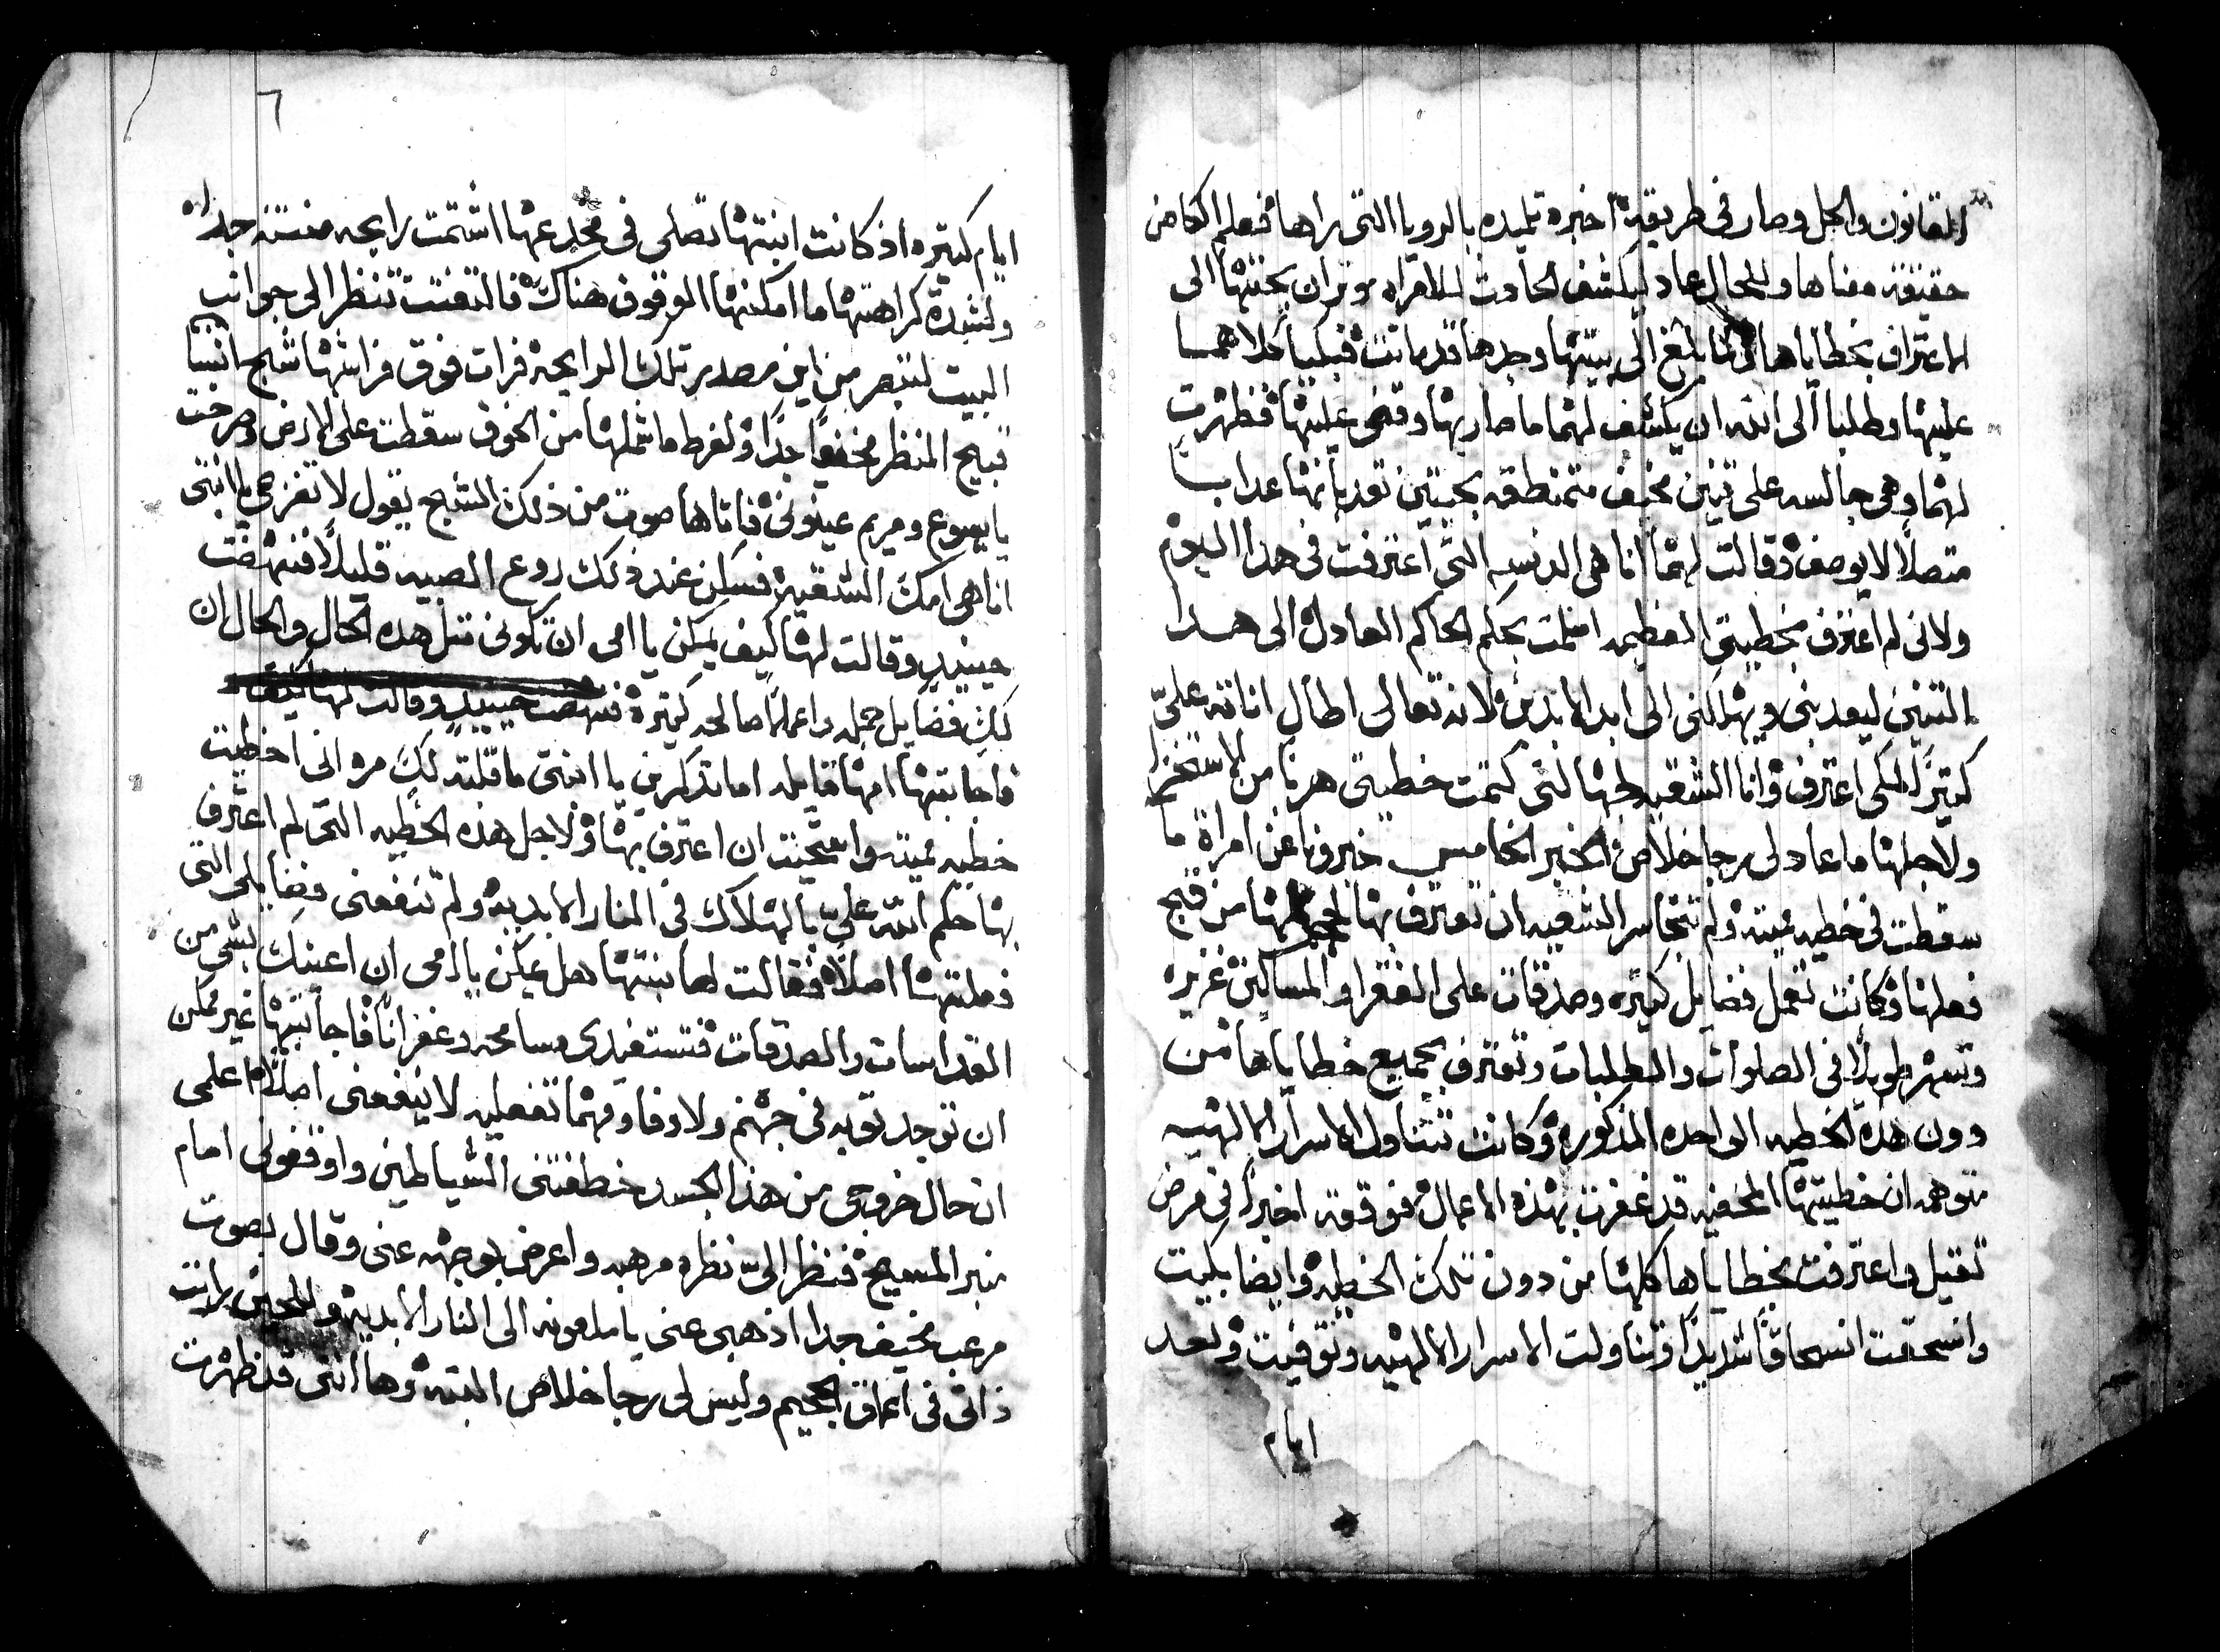 القانون والحل وصار في طريقه اخبره تلميده بالرويا التي راها فعلم الكاهن
حقيقة معناها وللحال عاد ليكشف الحادث للامراه موثران يحتتها الى
الاعتراف بخطاياها فلما بلغ الى بيتها وجدها قد ماتت فبكيا كلاهما
عليها وطلبا الى الله ان يكشف لهما ما صار بها وقضى عليها فظهرت
لهما وهي جالسه على تنين مخيف متمنطقه بحيتين تعدبانها عدابا
متصلاً لا يوصف وقالت لهما انا هي الدنسه التي اعترفت في هدا اليوم
ولاني لم اعترف بخطيتي العظيمه اسلمت بحكم الحاكم العادل الى هدا
التنين ليعدبني ويهلكني الى ابد الابدين لانه تعالى اطال اناته عليّ
كتيرًا لكي اعترف وانا الشقيه لجهالتي كتمت خطيتي هربا من الاستخزا
ولاجلها ما عاد لي رجا خلاص الخبر الخامس خبرونا عن امراة ما
سقطت في خطيه مميته ولم تتجاسر الشقيه ان تعترف بها لخجلها من قبح
فعلها وكانت تعمل فضايل كتيره وصدقات على الفقرا والمساكين غزيره
وتسهر طويلاً في الصلوات والطلبات وتعترف بجميع خطاياها من
دون هده الخطيه الواحده المذكوره وكانت تتناول الاسرار الالهيه
متوهمه ان خطيتها المخفيه قد غفرت بهذه الاعمال فوقعت اخيراً في مرض
تقيل واعترفت بخطاياها كلها من دون تلك الخطيه وايضا بكيت
وانسحقت انسحاقًا شديدًا وتناولت الاسرار الالهيه وتوفيت وبعد
ايام
٦
ايام كتيره اذ كانت ابنتها تصلى في مخدعها اشتمت رايحه منتنه جدا
ولشدة كراهتها ما امكنها الوقوف هناك فالتفتت تنظر الى جوانب
البيت لتبصر من اين مصدر تلك الرايحه فرات فوق فراشها شبح انسيا
قبيح المنظر مخيفًا جدًا ولفرط ما شملها من الخوف سقطت على الارض وصرخت
يا يسوع ومريم عينوني فاتاها صوت من ذلك الشبح يقول لا تفزعي يا ابنتي
انا هي امك الشقيه فسكن عند ذلك روع الصبيه قليلاً فنهضت
حينيدٍ وقالت لها كيف يمكن يا امي ان تكوني متل هده الحال والحال ان
لكِ فضايل جمله واعمالاً صالحه كتيره فنهضت حينيدٍ وقالت لها كيف
فاجابتها امها قايله اما تدكرين يا ابنتي ما قلته لكِ مره اني اخطيت
خطيه مميته واستحيت ان اعترف بها ولاجل هذه الخطيه التي لم اعترف
بها حكم الله عليّ بالهلاك في النار الابديه ولم تنفعني فضايلي التي
فعلتها اصلاً فقالت لها ابنتها هل يمكن يا امي ان اعينك بشي من
القداسات والصدقات فتستفيدي مسامحه وغفرانًا فاجابتها غير ممكن
ان توجد توبه في جهنم ولا وفا ومهما تفعليه لا ينفعني اصلاً اعلمي
ان حال خروجي من هذا الجسد خطفتني الشياطين واوقفوني امام
منبر المسيح فنظر اليّ نظره مرهبه واعرض بوجهه عني وقال بصوت
مرعب مخيف جدا اذهبي عني يا ملعونه الى النار الابديه وللحين رايت
ذاتي في اعماق الجحيم وليس لي رجا خلاص البته وها انني قد ظهرت